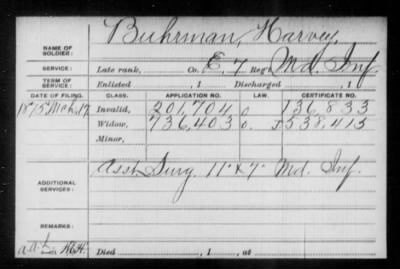 NAME OF SOLDIER: Buhrman, Harvey,
SERVICE: Late rank, Co. E, 7 Reg't Md. Inf.
TERM OF SERVICE: Enlisted , 1 Discharged , 1
DATE OF FILING. CLASS. APPLICATION NO. LAW. CERTIFICATE NO.
1875 Mch 17 Invalid, 201,704 136,833
Widow, 736,403 538,415
Minor,
ADDITIONAL SERVICES: Asst Surg. 11" & 7" Md. Inf.
REMARKS:
Died , 1 , at